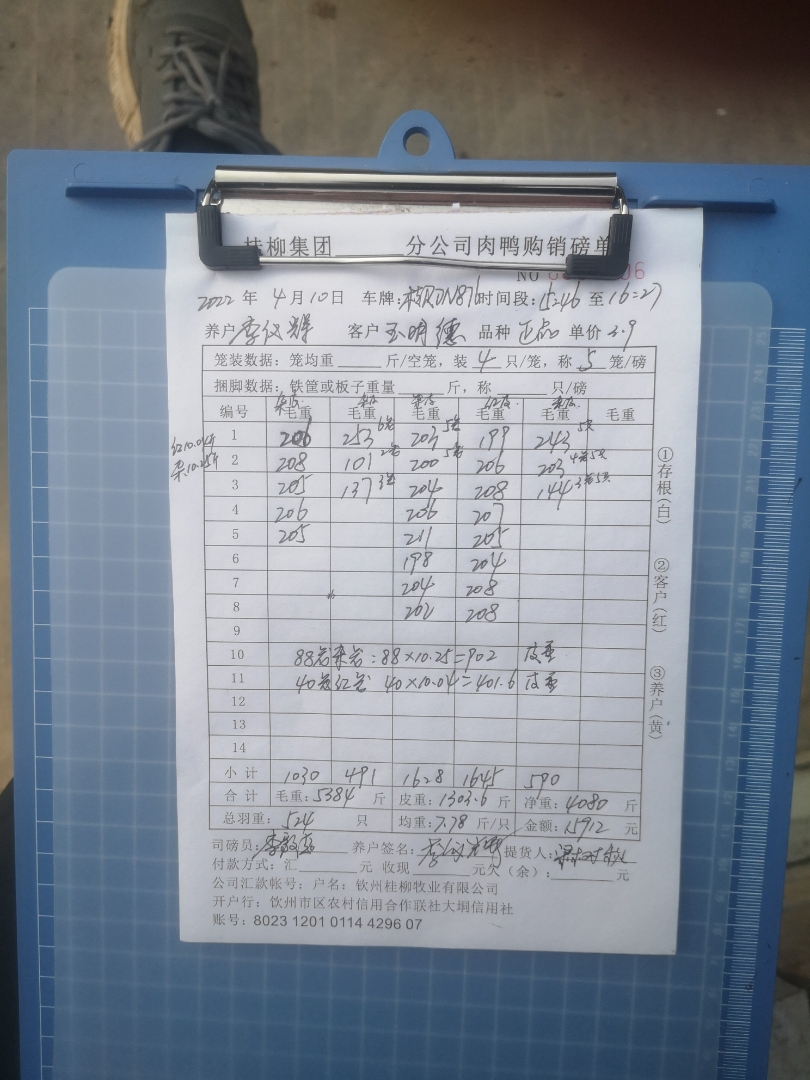 桂柳集团 分公司肉鸭购销磅单
NO 06
2022 年 4 月 10 日 车牌: 时间段: 15:46 至 16:27
养户 李仪辉 客户 玉明德 品种 正品 单价 3.9
笼装数据: 笼均重 斤/空笼, 装 4 只/笼, 称 5 笼/磅
捆脚数据: 铁筐或板子重量 斤, 称 只/磅
编号 毛重 毛重 毛重 毛重 毛重 毛重
红10.04斤
杂10.25斤
1 206 253 203 199 243
2 208 101 200 206 203
3 205 137 204 208 144
4 206 206 207
5 205 211 205
6 198 204
7 204 208
8 202 208
9
10 88 : 88×10.25=902 皮重
11 40 40×10.04=401.6 皮重
12
13
14
小计 1030 491 1628 1645 590
合计 毛重: 5384 斤 皮重: 1303.6 斤 净重: 4080 斤
总羽重: 524 只 均重: 7.78 斤/只 金额: 15912 元
司磅员: 养户签名: 提货人:
付款方式: 汇 元 收现 元欠(余): 元
公司汇款帐号: 户名: 钦州桂柳牧业有限公司
开户行: 钦州市区农村信用合作联社大垌信用社
账号: 8023 1201 0114 4296 07
①存根(白)
②客户(红)
③养户(黄)